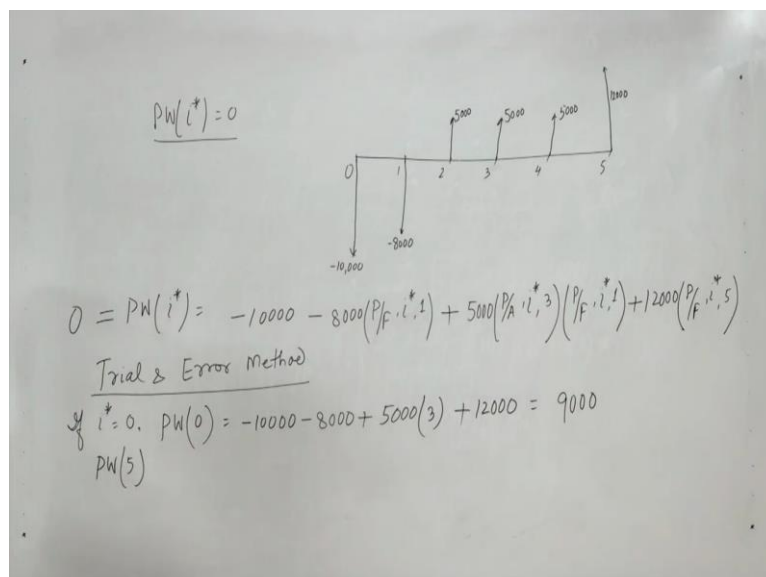 PW(i*) = 0
5000 5000 5000 12000
0 1 2 3 4 5
-8000
-10,000
0 = PW(i*) = -10000 - 8000(P/F, i*, 1) + 5000(P/A, i*, 3)(P/F, i*, 1) + 12000(P/F, i*, 5)
Trial & Error Method
If i* = 0. PW(0) = -10000 - 8000 + 5000(3) + 12000 = 9000
PW(5)